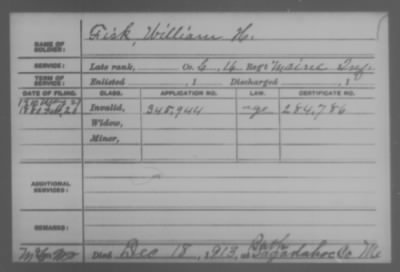 NAME OF SOLDIER: Fisk, William H.
SERVICE: Late rank, Co. G, 16 Reg't Maine Inf.
TERM OF SERVICE: Enlisted , 1 Discharged , 1
DATE OF FILING. CLASS. APPLICATION NO. LAW. CERTIFICATE NO.
1880 Feb 26 Invalid, 345,944 284,786
Widow,
Minor,
ADDITIONAL SERVICES:
REMARKS:
Died Dec 18, 1913, at Bath
Sagadahoc Co Me